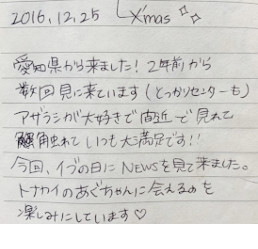 2016.12.25 X'mas
愛知県から来ました！2年前から
数回見に来ています(とっかりセンターも)
アザラシが大好きで間近で見れて
触れていつも大満足です!!
今回、イブの日にNEWSを見て来ました。
トナカイのあぐちゃんに会えるのを
楽しみにしています♡